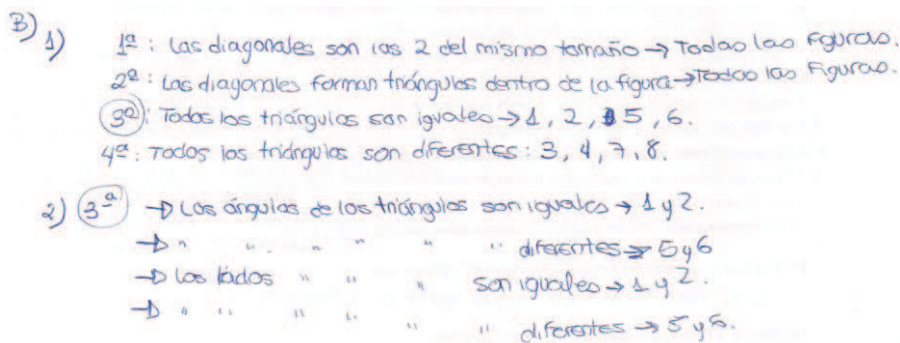 B) 1) 1ª : Las diagonales son las 2 del mismo tamaño → Todas las Figuras.
2ª : Las diagonales forman triángulos dentro de la figura → Todas las Figuras.
3ª : Todos los triángulos son iguales → 1, 2, 5, 6.
4ª : Todos los triángulos son diferentes : 3, 4, 7, 8.
2) 3ª → Los ángulos de los triángulos son iguales → 1 y 2.
→ " " " " " " diferentes → 5 y 6
→ Los lados " " " son iguales → 1 y 2.
→ " " " " " " diferentes → 5 y 6.